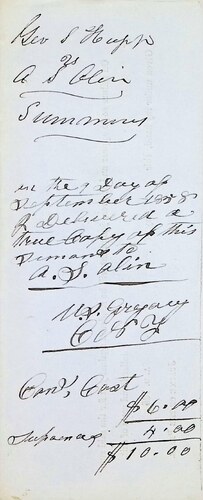 Geo S Hupp
vs
A S Olin
Summons
on the 7 day of
September 1858
I Delivered a
True Copy of this
Sumons to
A. S. Olin
Gregory
Cost
$6.00
4.00
$10.00